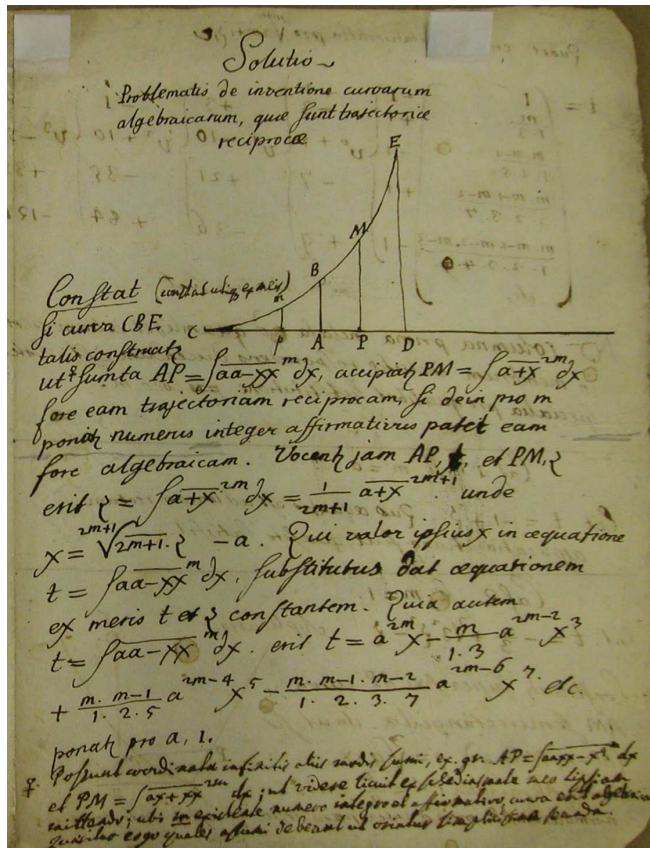 Solutio
Problematis de inventione curvarum
algebraicarum, quae sunt trajectoriae
reciprocae
E
M
B
m
C p A P D
Constat
si curva CBE
talis construatz
utqz sumta AP = ∫aa-xx^m dx, accipiatz PM = ∫a+x^2m dx
fore eam trajectoriam reciprocam, si dein pro m
ponatz numerus integer affirmativus patet eam
fore algebraicam. Vocentz jam AP, t, et PM, z
erit z = ∫a+x^2m dx = 1/2m+1 a+x^2m+1 unde
x = 2m+1√2m+1. z - a. Qui valor ipsius x in aequatione
t = ∫aa-xx^m dx, substitutus dat aequationem
ex meris t et z constantem. Quia autem
t = ∫aa-xx^m dx. erit t = a^2m x - m/1.3 a^2m-2 x^3
+ m.m-1/1.2.5 a^2m-4 x^5 - m.m-1.m-2/1.2.3.7 a^2m-6 x^7. etc.
ponatz pro a, 1.
Possunt coordinatae infinitis aliis modis sumi, ex. gr. AP = ∫axx-x^4^m dx
et PM = ∫ax+xx^2m dx; ut videre licuit ex schediasmate meo Lipsiam
; ubi m existente numero integro et affirmativo, curva erit algebraica
ergo quales assumi debeant ut oriatur simplicissima